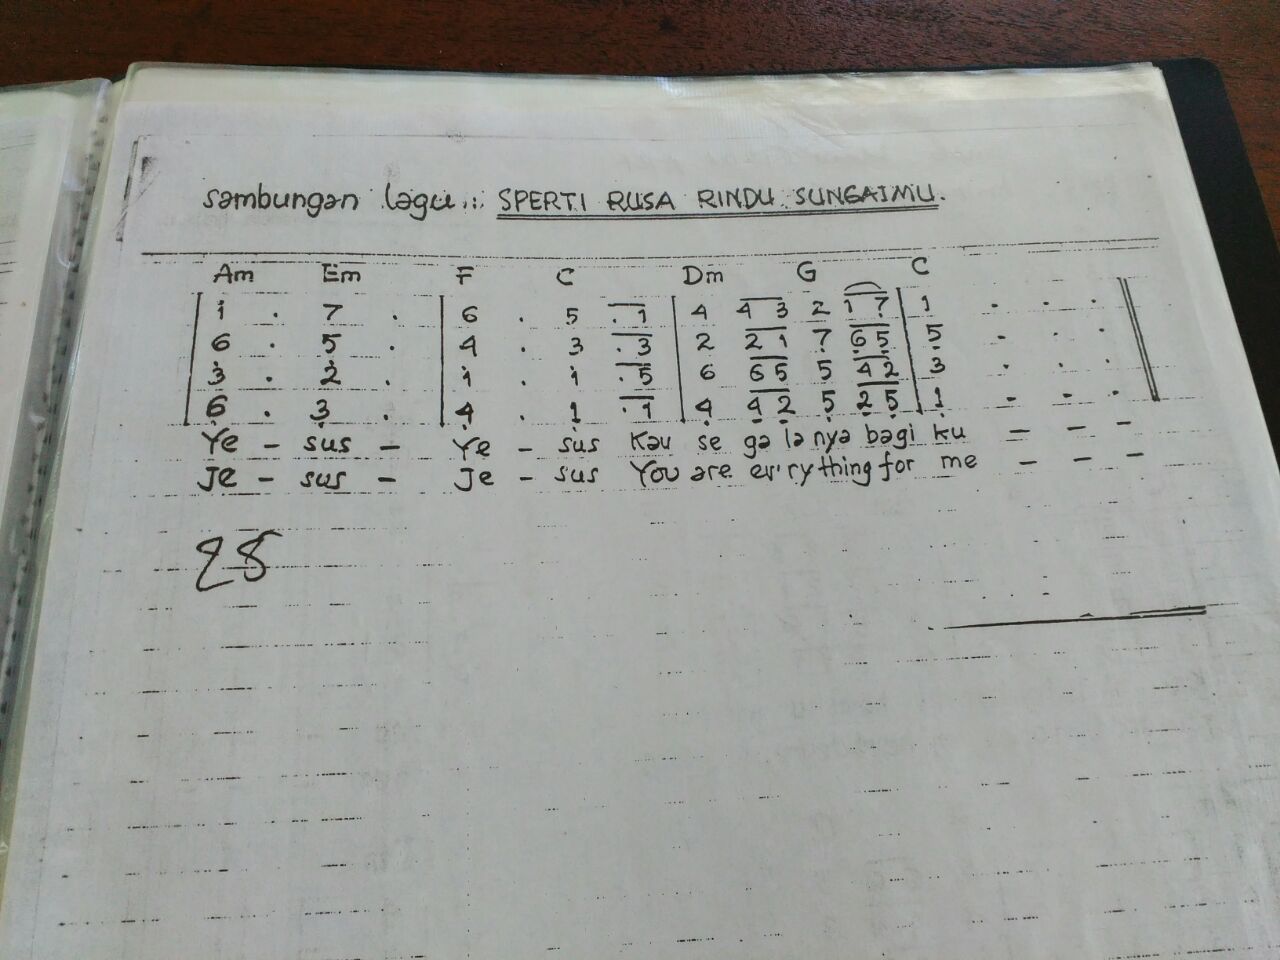 sambungan lagu..: SPERTI RUSA RINDU SUNGAIMU.
Am Em F C Dm G C
1 . 7 . | 6 . 5 . 1 | 4 4 3 2 1 7 | 1 . . .
6 . 5 . | 4 . 3 . 3 | 2 2 1 7 6 5 | 5 . . .
3 . 2 . | 1 . 1 . 5 | 6 6 5 5 4 2 | 3 . . .
6 . 3 . | 4 . 1 . 1 | 4 4 2 5 2 5 | 1 . . .
Ye - sus - Ye - sus Kau se ga la nya bagi ku - - -
Je - sus - Je - sus You are ev'rything for me - - -
28